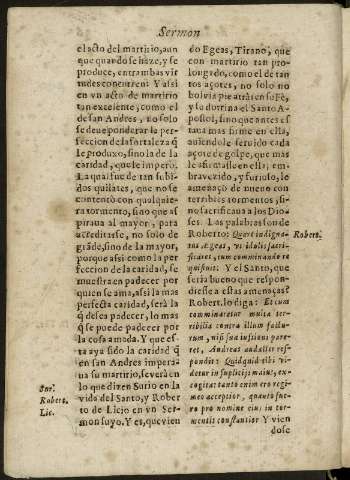 Sermon
el acto del martirio, aun
que quando se haze, y se
produce, entrambas vir
tudes concurren: Y assi
en vn acto de martirio
tan excelente, como el
de san Andres, no solo
se deue ponderar la per-
feccion de la fortaleza q̃
le produxo, sino la de la
caridad, que le imperò.
La qual fue de tan subi
dos quilates, que no se
contentò con qualquie-
ra tormento, sino que as
piraua al mayor, para
acreditarse, no solo de
grãde, sino de la mayor,
porque assi como la per
feccion de la caridad, se
muestra en padecer por
quien se ama, assi la mas
perfecta caridad, serà la
q̃ dessea padecer, lo mas
q̃ se puede padecer por
la cosa amada. Y que es-
ta aya sido la caridad q̃
en san Andres impera-
ua su martirio, se verà en
lo que dizen Surio en la
vida del Santo, y Rober
to de Licio en vn Ser-
mon suyo. Y es, que vien
Sur.
Robert.
Lic.
do Egeas, Tirano, que
con martirio tan pro-
longado, como el de tan
tos açotes, no solo no
boluia pie atràs en su Fè,
y la dotrina el Santo A-
postol, sino que antes es
taua mas firme en ella,
auiendole ferido cada
açote de golpe, que mas
le afirmasse en ella; em-
brauezido, y furioso, le
amenaçò de nueuo con
terribles tormentos, si-
no sacrificaua a los Dio-
ses. Las palabras son de
Roberto: Quare indigna-
tus Ægeas, vt idolis sacri-
ficaret, eum comminando re
quisiuit: Y el Santo, que
seria bueno que respon-
diesse a estas amenaças?
Robert. lo diga: Et cum
comminaretur multa ter-
ribilia contra illum factu-
rum, nisi sua iussioni pare-
ret, Andreas audacter res-
pondit: Quidquid tibi vi-
detur in supliciis maius, ex-
cogita: tanto enim ero regi
meo acceptior, quanto fue-
ro pro nomine eius in tor-
mentis constantior. Y vien
Robert.
dose